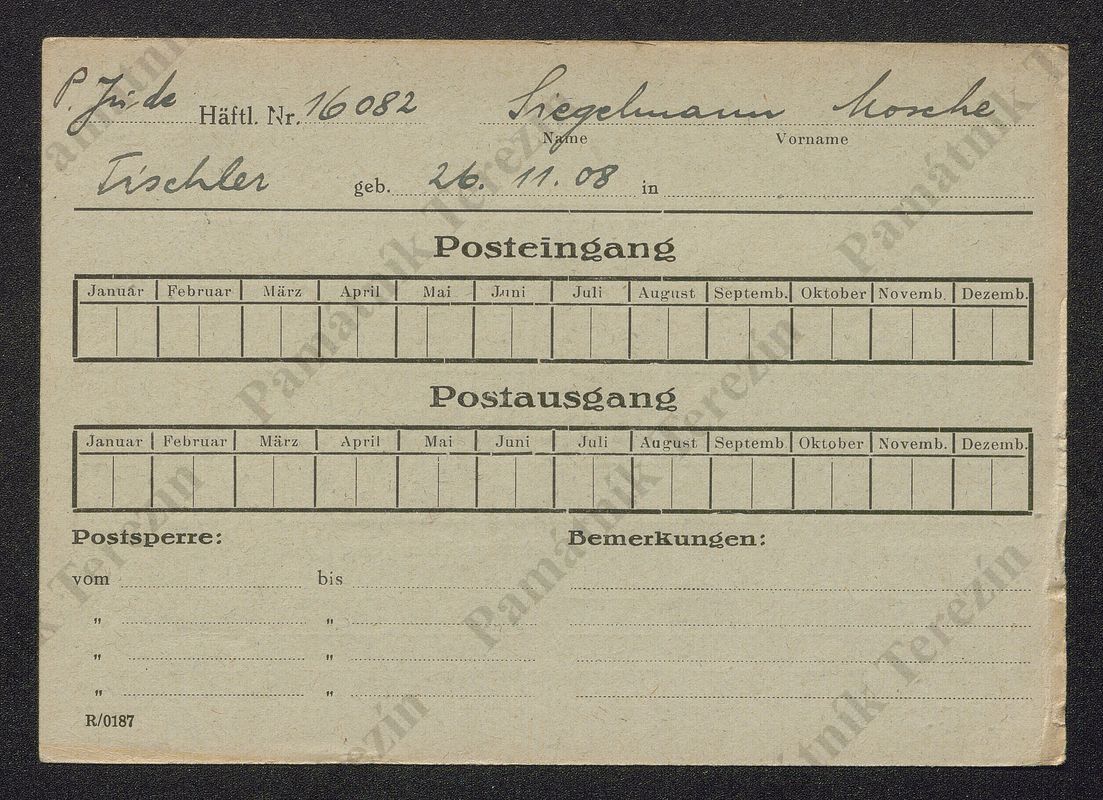 P. Jude Häftl. Nr. 16082 Siegelmann Mosche
Name Vorname
Tischler geb. 26. 11. 08 in
Posteingang
Januar Februar März April Mai Juni Juli August Septemb. Oktober Novemb. Dezemb.
Postausgang
Januar Februar März April Mai Juni Juli August Septemb Oktober Novemb. Dezemb.
Postsperre: Bemerkungen:
vom bis
" "
" "
" "
R/0187
Památník Terezín